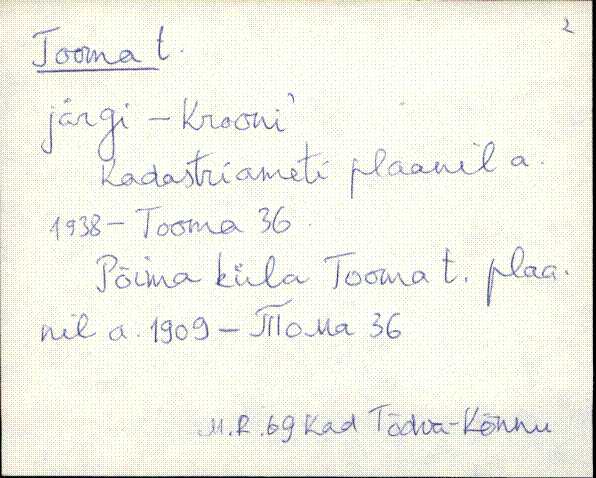 2
Tooma t.
järgi - Krooni
Kadastriameti plaanil a.
1938 - Tooma 36.
Põima küla Tooma t. plaa-
nil a. 1909 - Тома 36
M.R. 69 Kad Tõdva-Kõnnu